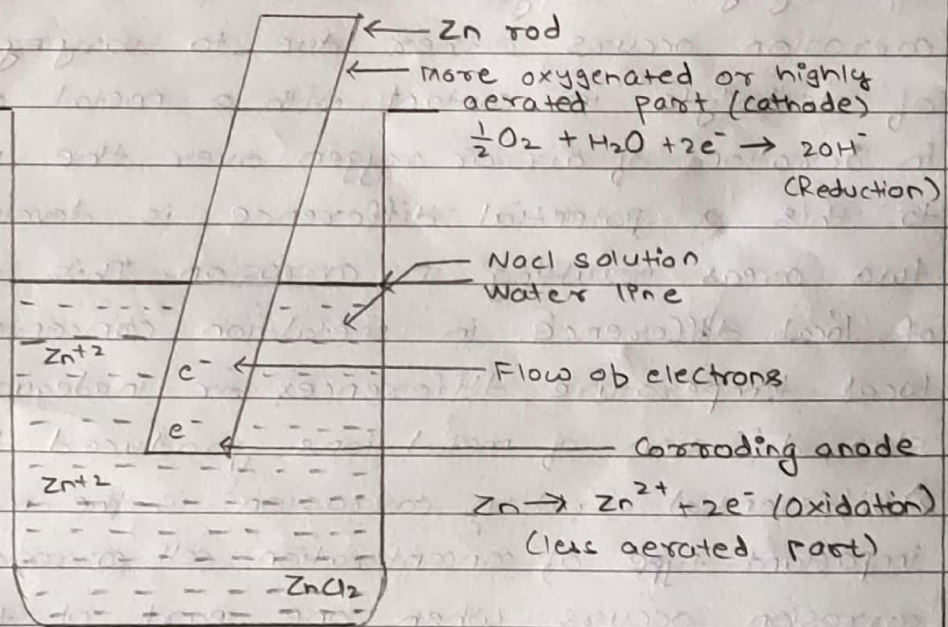 Zn rod
more oxygenated or highly
aerated part (cathode)
½O2 + H2O + 2e⁻ → 2OH⁻
(Reduction)
Nacl solution
Water line
Zn+2
e⁻
Flow ob electrons
e⁻
Corroding anode
Zn+2
Zn → Zn²⁺ + 2e⁻ (Oxidation)
(less aerated part)
ZnCl2